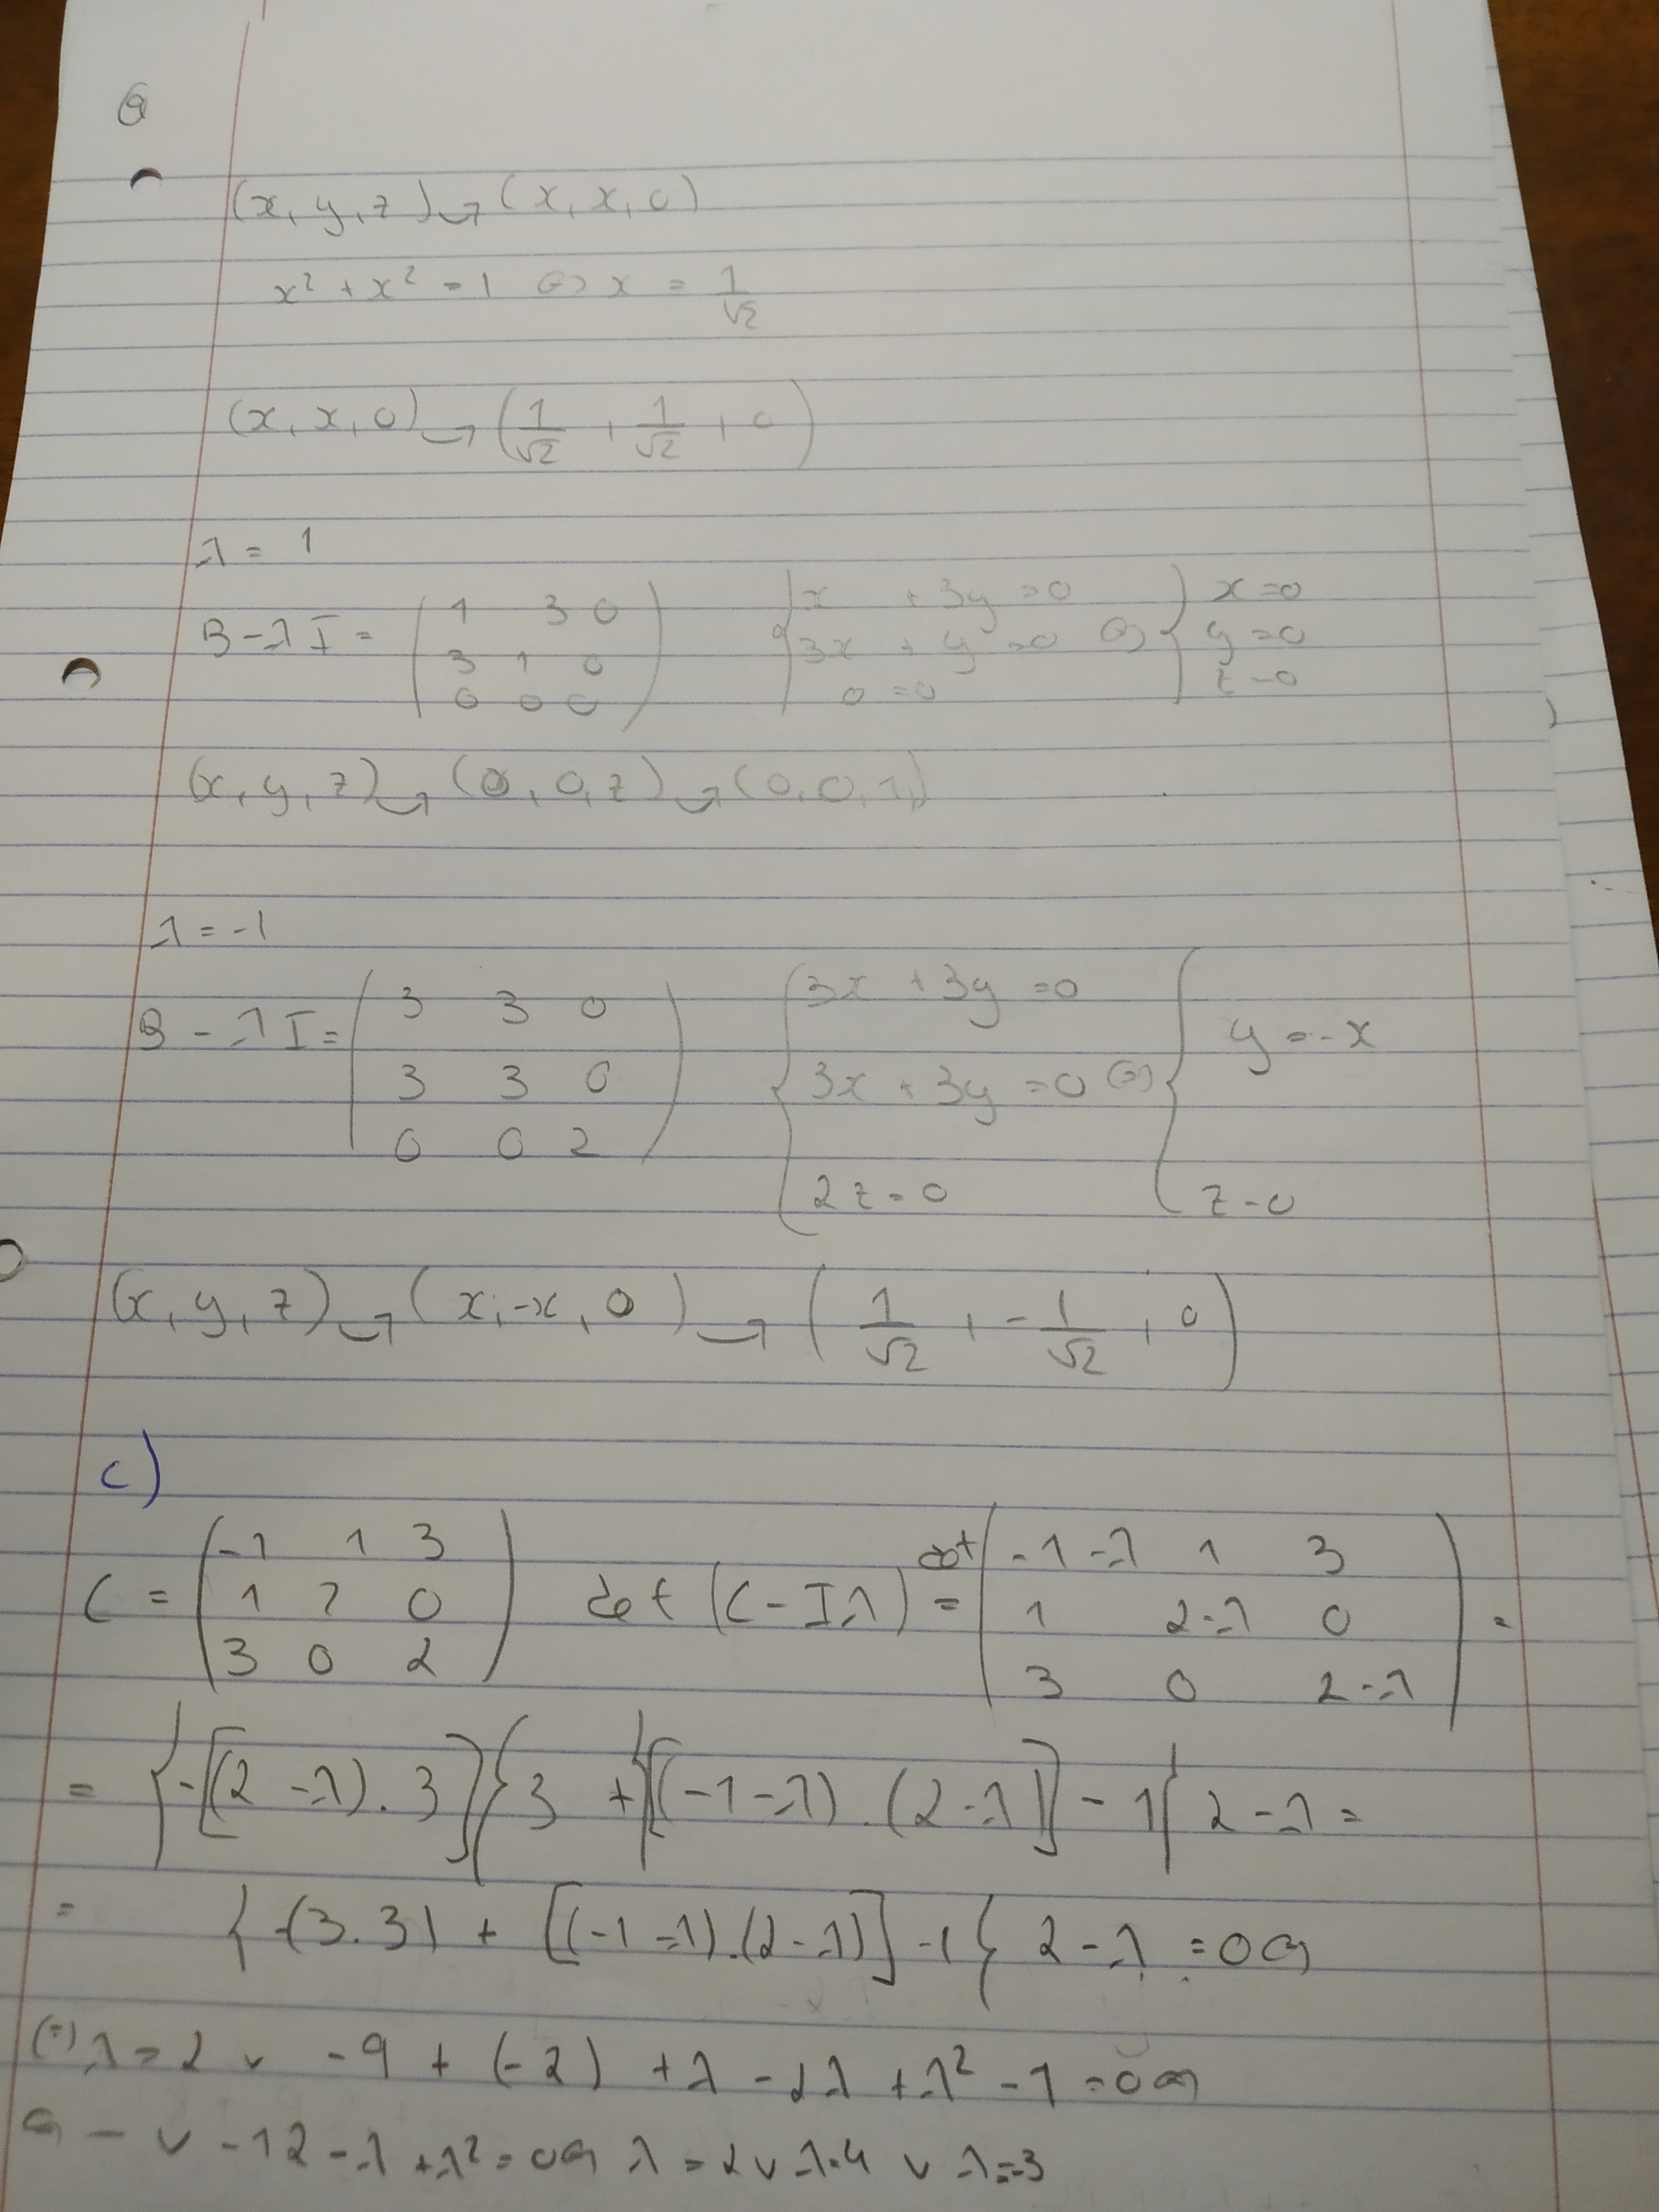 ⇔
(x, y, z) → (x, x, 0)
x² + x² = 1 ⇔ x = 1/√2
(x, x, 0) → (1/√2, 1/√2, 0)
λ = 1
B - λI = (1 3 0
3 1 0
0 0 0) {x + 3y = 0
3x + y = 0
0 = 0 ⇔ {x = 0
y = 0
z = 0
(x, y, z) → (0, 0, z) → (0, 0, 1)
λ = -1
B - λI = (3 3 0
3 3 0
0 0 2) {3x + 3y = 0
3x + 3y = 0
2z = 0 ⇔ {y = -x
z = 0
(x, y, z) → (x, -x, 0) → (1/√2, -1/√2, 0)
c)
C = (-1 1 3
1 2 0
3 0 2) det (C - Iλ) = det (-1-λ 1 3
1 2-λ 0
3 0 2-λ) =
= {-[(2-λ).3]}3 + {[(-1-λ).(2-λ)] - 1} 2-λ =
= {-(3.3) + [(-1-λ).(2-λ)] - 1} 2-λ = 0 ⇔
⇔ λ = 2 ∨ -9 + (-2) + λ - 2λ + λ² - 1 = 0 ⇔
⇔ — ∨ -12 - λ + λ² = 0 ⇔ λ = 2 ∨ λ = 4 ∨ λ = -3